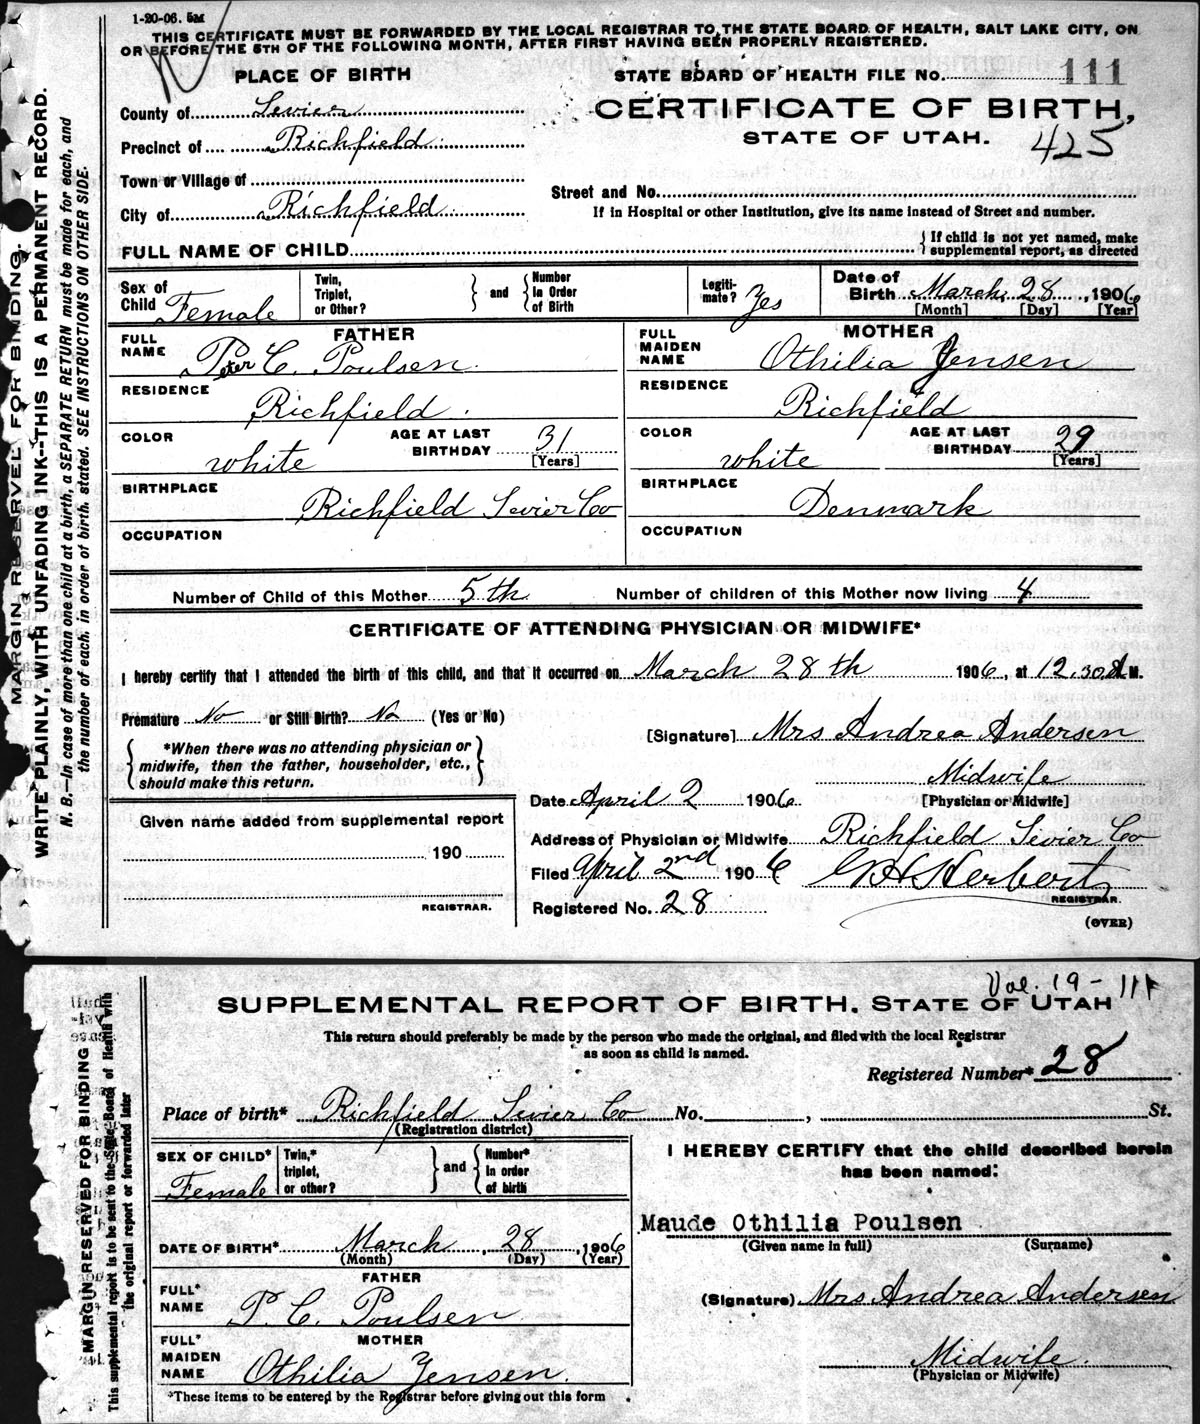 1-20-06. 5M
THIS CERTIFICATE MUST BE FORWARDED BY THE LOCAL REGISTRAR TO THE STATE BOARD OF HEALTH, SALT LAKE CITY, ON
OR BEFORE THE 5TH OF THE FOLLOWING MONTH, AFTER FIRST HAVING BEEN PROPERLY REGISTERED.
PLACE OF BIRTH
STATE BOARD OF HEALTH FILE No. 111
County of Sevier
CERTIFICATE OF BIRTH,
STATE OF UTAH. 425
Precinct of Richfield
Town or Village of
Street and No.
City of Richfield
If in Hospital or other Institution, give its name instead of Street and number.
FULL NAME OF CHILD
{ If child is not yet named, make
supplemental report, as directed
Sex of Child Female
Twin, Triplet, or Other? } and { Number In Order of Birth
Legiti-mate? Yes
Date of Birth March 28, 1906
[Month] [Day] [Year]
FATHER
FULL NAME Peter C. Poulsen.
RESIDENCE Richfield.
COLOR white AGE AT LAST BIRTHDAY 31 [Years]
BIRTHPLACE Richfield Sevier Co
OCCUPATION
MOTHER
FULL MAIDEN NAME Othilia Jensen
RESIDENCE Richfield
COLOR white AGE AT LAST BIRTHDAY 29 [Years]
BIRTHPLACE Denmark
OCCUPATION
Number of Child of this Mother 5th Number of children of this Mother now living 4
CERTIFICATE OF ATTENDING PHYSICIAN OR MIDWIFE*
I hereby certify that I attended the birth of this child, and that it occurred on March 28th 1906, at 12.30 A.M.
Premature No or Still Birth? No (Yes or No)
{ *When there was no attending physician or
midwife, then the father, householder, etc.,
should make this return. }
[Signature] Mrs Andrea Andersen
Midwife
[Physician or Midwife]
Date April 2 1906
Given name added from supplemental report
190
REGISTRAR.
Address of Physician or Midwife Richfield Sevier Co
Filed April 2nd 1906 G H Herbert
REGISTRAR.
Registered No. 28
(OVER)
MARGIN RESERVED FOR BINDING.
WRITE PLAINLY, WITH UNFADING INK--THIS IS A PERMANENT RECORD.
N. B.—In case of more than one child at a birth, a SEPARATE RETURN must be made for each, and
the number of each, in order of birth, stated. SEE INSTRUCTIONS ON OTHER SIDE.
Vol. 19 - 111
SUPPLEMENTAL REPORT OF BIRTH, STATE OF UTAH
This return should preferably be made by the person who made the original, and filed with the local Registrar
as soon as child is named.
Registered Number* 28
Place of birth* Richfield Sevier Co No. , St.
(Registration district)
SEX OF CHILD* Female
Twin,* triplet, or other? } and { Number* In order of birth
I HEREBY CERTIFY that the child described herein
has been named:
Maude Othilia Poulsen
(Given name in full) (Surname)
DATE OF BIRTH* March, 28, 1906
(Month) (Day) (Year)
FATHER
FULL* NAME P. C. Poulsen
(Signature) Mrs Andrea Andersen
MOTHER
FULL* MAIDEN NAME Othilia Jensen.
Midwife.
(Physician or Midwife)
*These items to be entered by the Registrar before giving out this form
MARGIN RESERVED FOR BINDING
This supplemental report is to be sent to the State Board of Health with
the original report or forwarded later